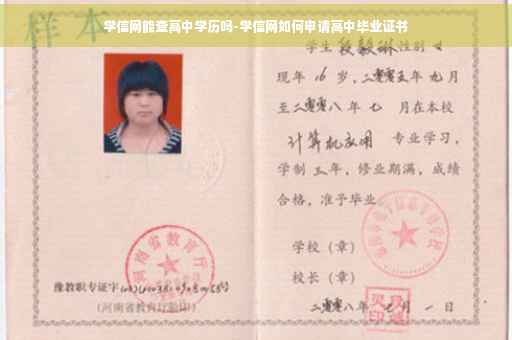 学信网能查高中学历吗-学信网如何申请高中毕业证书
样本
学生段毅琳性别女
现年16岁,二零零五年九月
至二零零八年七月在本校
计算机应用 专业学习,
学制三年,修业期满,成绩
合格,准予毕业
学校(章)
校长(章)
二零零八年七月一日
河南省教育厅
豫教职专证字
(河南省教育厅验印)